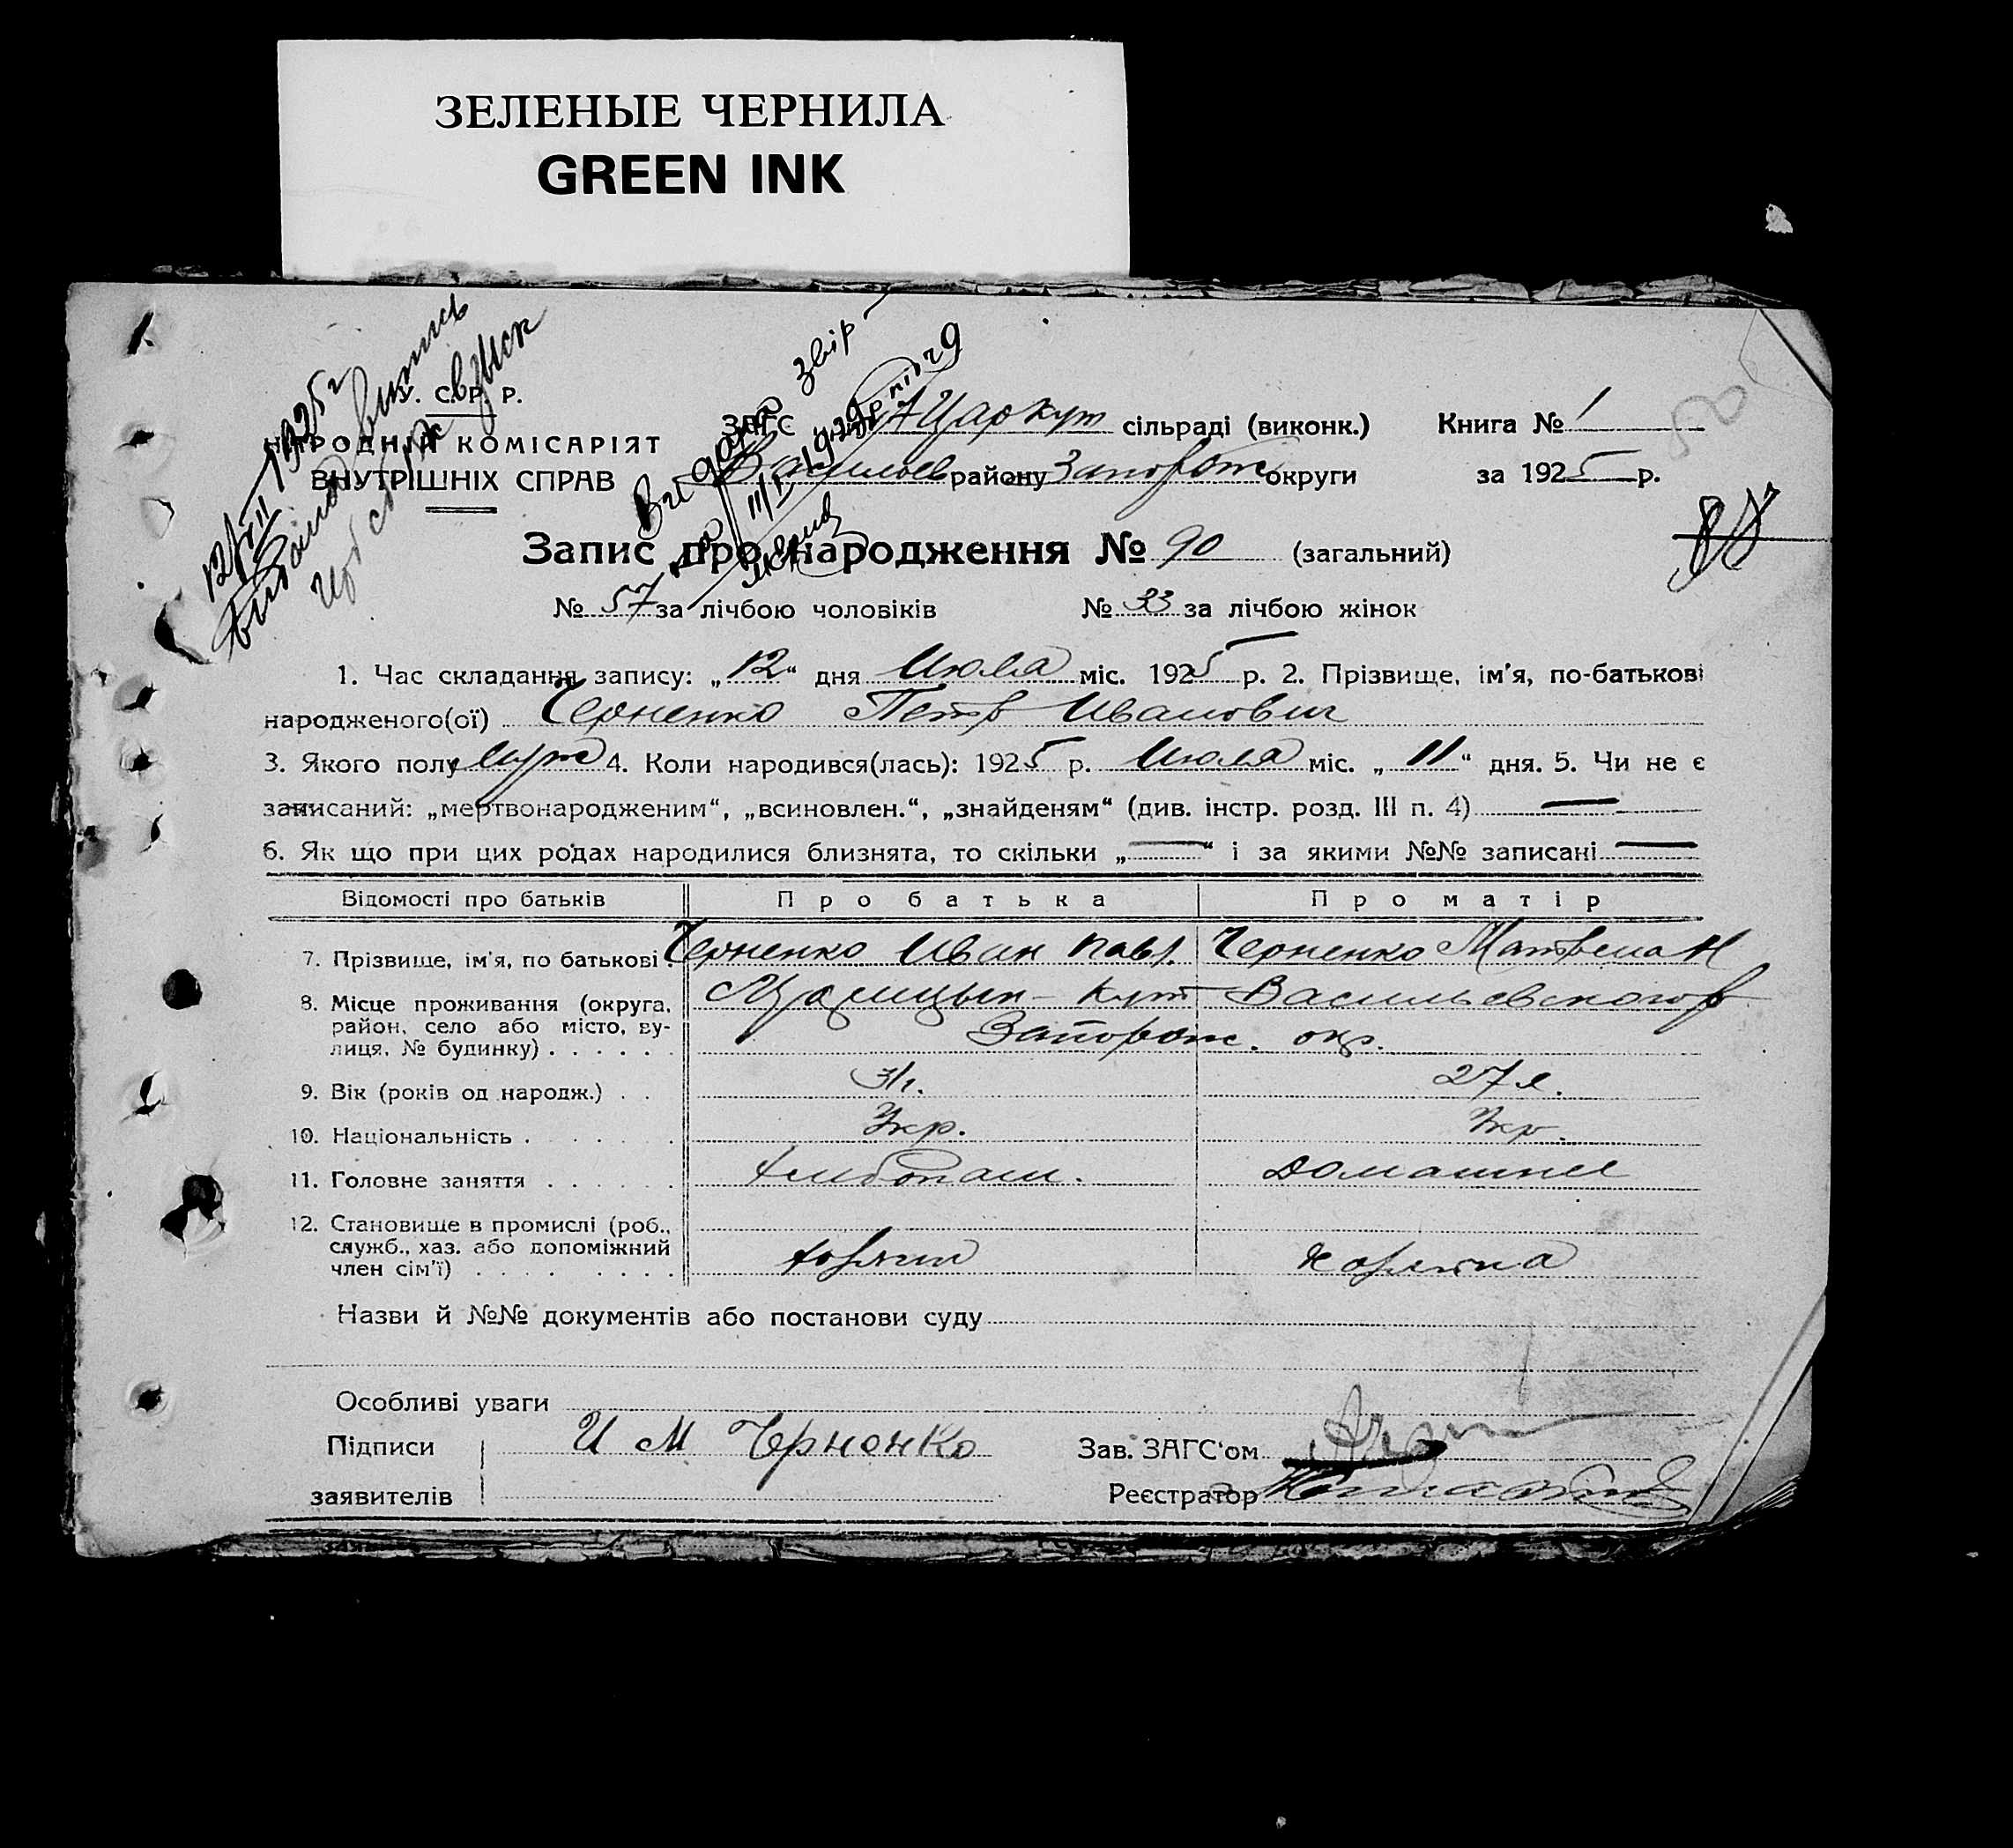 ЗЕЛЕНЫЕ ЧЕРНИЛА
GREEN INK
У. С. Р. Р.
НАРОДНІЙ КОМІСАРІЯТ
ВНУТРІШНІХ СПРАВ
12/VII 1925 г
выпись
ЗАГС Цар кут сільраді (виконк.) Книга № 1
Васильев району Запорож округи за 1925 р.
Запис про народження № 90 (загальний)
№ 57 за лічбою чоловіків № 33 за лічбою жінок
1. Час складання запису: „12“ дня Июля міс. 1925 р. 2. Прізвище, ім'я, по-батькові
народженого(ої) Черненко Петр Иванович
3. Якого полу муж 4. Коли народився(лась): 1925 р. Июля міс. „11“ дня. 5. Чи не є
записаний: „мертвонародженим“, „всиновлен.“, „знайденям“ (див. інстр. розд. III п. 4) —
6. Як що при цих родах народилися близнята, то скільки „—“ і за якими №№ записані —
Відомості про батьків Про батька Про матір
7. Прізвище, ім'я, по батькові. Черненко Иван Павл. Черненко
8. Місце проживання (округа, Царицын-Кут Васильевского р
район, село або місто, ву-
лиця, № будинку) . . . . . . Запорож. окр.
9. Вік (років од народж.) . . 31 г. 27 л.
10. Національність . . . . . . . Укр. Укр.
11. Головне заняття . . . . . . хлебопаш. домашнее
12. Становище в промислі (роб.,
служб., хаз. або допоміжний
член сім'ї) . . . . . . . . . хозяин хозяйка
Назви й №№ документів або постанови суду
Особливі уваги
Підписи И М Черненко Зав. ЗАГС'ом
заявителів Реєстратор